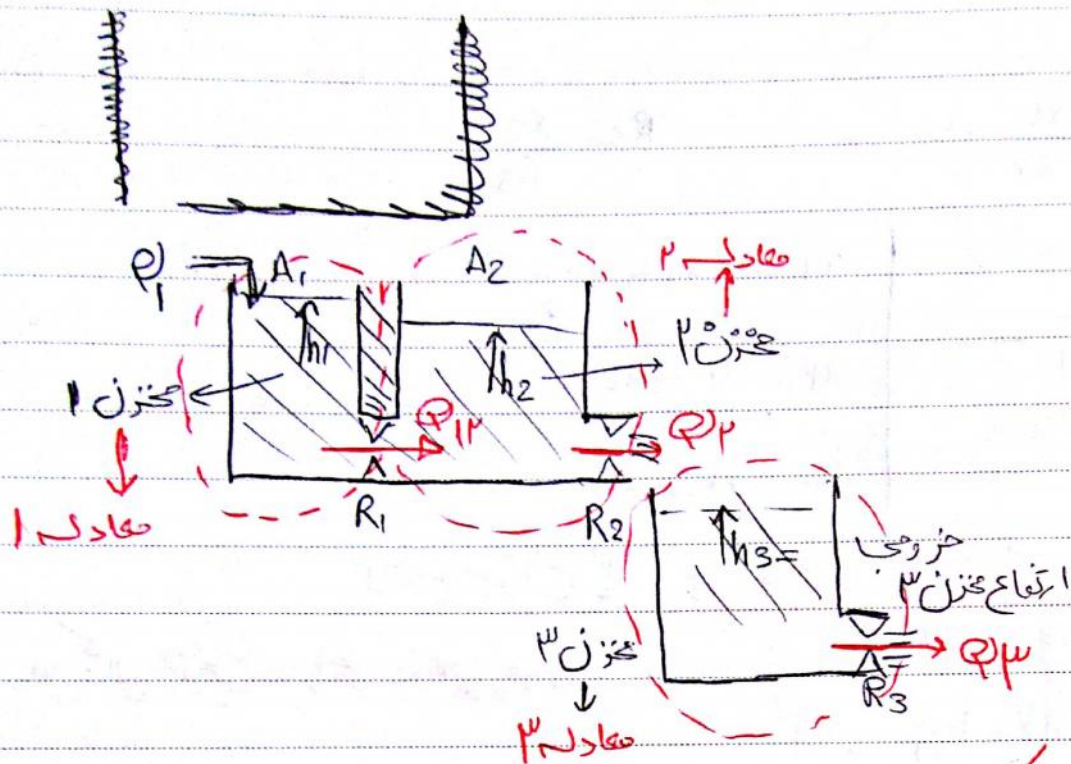 Q۱ A₁ A₂ معادله ۲
h₁ h₂ مخزن ۲
مخزن ۱ Q۱۲ Q۲
معادله ۱ R₁ R₂
h₃= خروجی
ارتفاع مخزن ۳
مخزن ۳ Q۳
R₃
معادله ۳